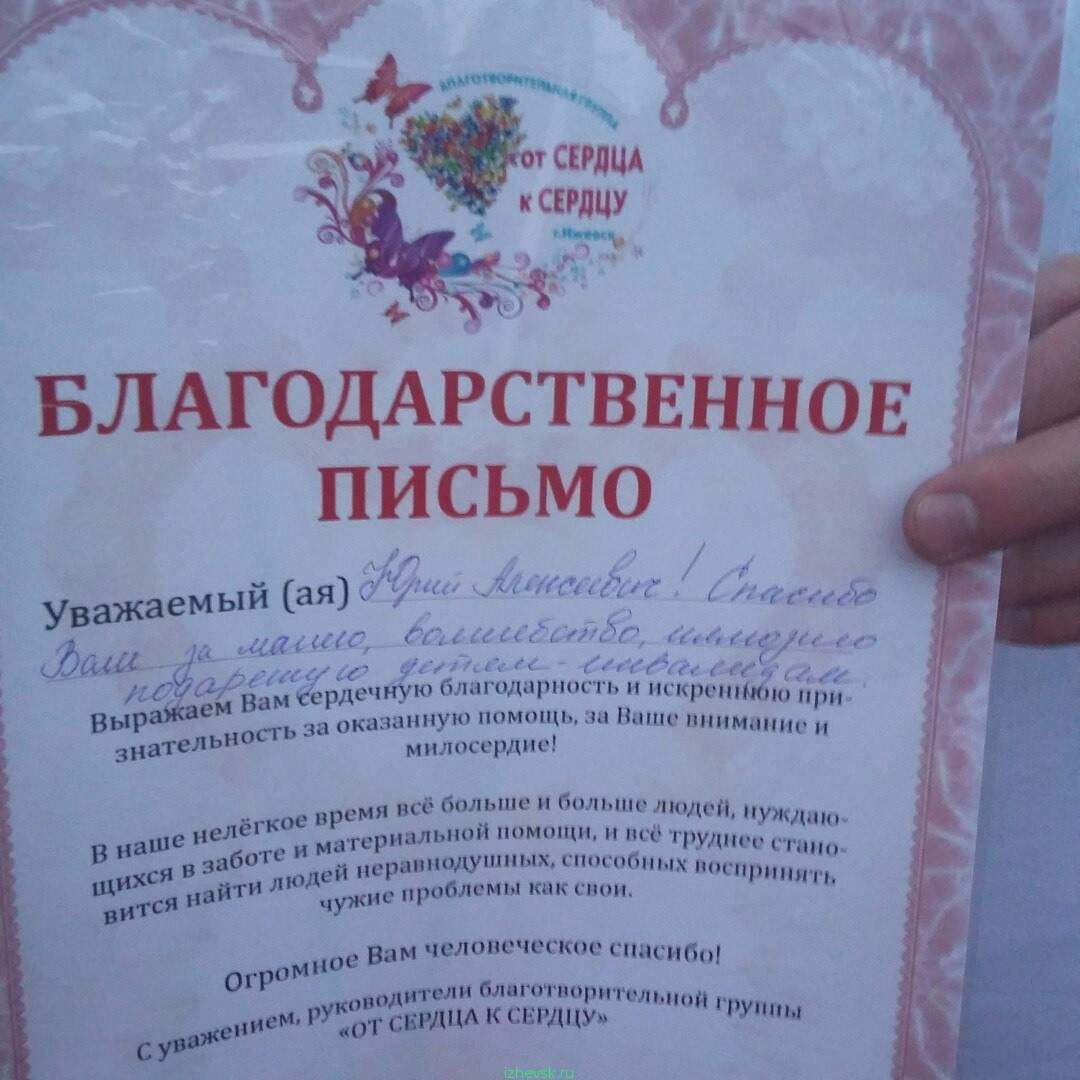 БЛАГОТВОРИТЕЛЬНАЯ ГРУППА
от СЕРДЦА
к СЕРДЦУ
г.Ижевск
БЛАГОДАРСТВЕННОЕ
ПИСЬМО
Уважаемый (ая) Юрий Алексеевич! Спасибо
Вам за магию, волшебство, иллюзию
подаренную детям-инвалидам.
Выражаем Вам сердечную благодарность и искреннюю при-
знательность за оказанную помощь, за Ваше внимание и
милосердие!
В наше нелёгкое время всё больше и больше людей, нуждаю-
щихся в заботе и материальной помощи, и всё труднее стано-
вится найти людей неравнодушных, способных воспринять
чужие проблемы как свои.
Огромное Вам человеческое спасибо!
С уважением, руководители благотворительной группы
«ОТ СЕРДЦА К СЕРДЦУ»
izhevsk.ru